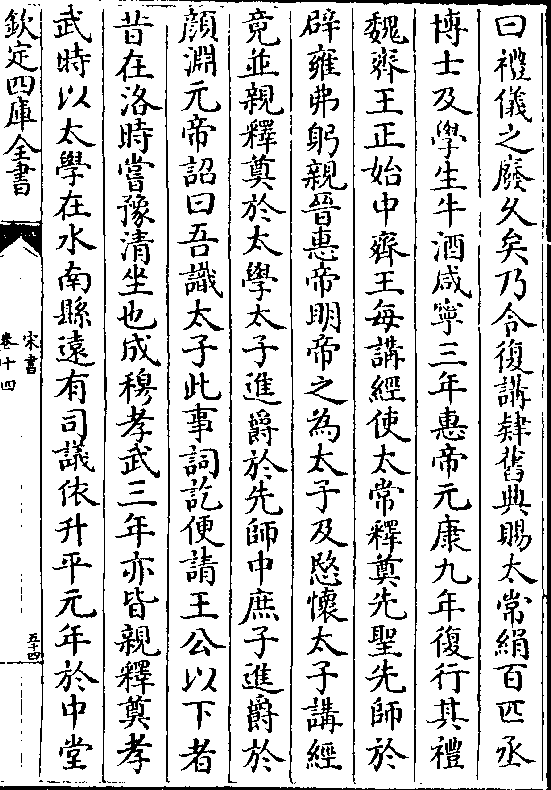 曰禮儀之廢久矣乃令復講肄舊典賜太常絹百匹丞
博士及學生牛酒咸寧三年惠帝元康九年復行其禮
魏齊王正始中齊王每講經使太常釋奠先聖先師於
辟雍弗躬親晉惠帝明帝之為太子及愍懷太子講經
竟並親釋奠於太學太子進爵於先師中庶子進爵於
顏淵元帝詔曰吾識太子此事詞訖便請王公以下者
昔在洛時嘗豫清坐也成穆孝武三年亦皆親釋奠孝
武時以太學在水南縣遠有司議依升平元年於中堂
欽定四庫全書
宋書
卷十四
五十四